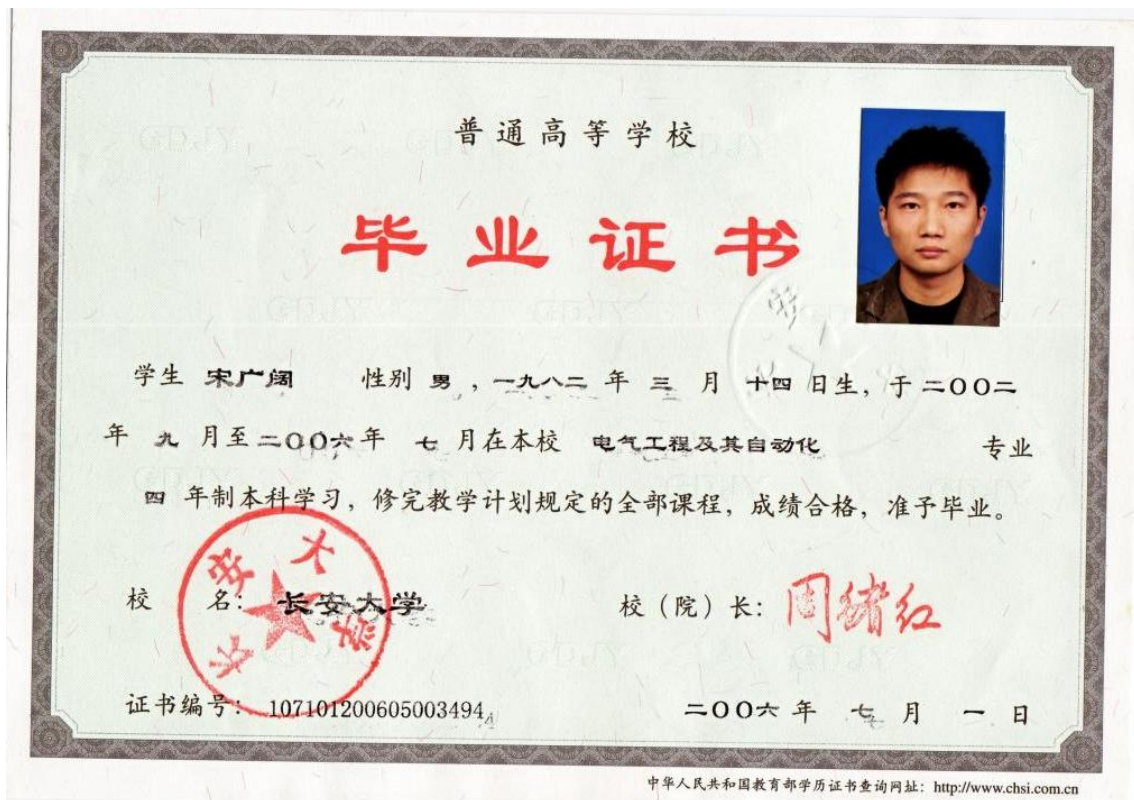 普通高等学校
毕业证书
学生 宋广阔 性别 男，一九八二 年 三 月 十四 日生，于 二〇〇二
年 九 月至 二〇〇六 年 七 月在本校 电气工程及其自动化 专业
四 年制本科学习，修完教学计划规定的全部课程，成绩合格，准予毕业。
校 名：长安大学
校（院）长：周绪红
长安大学
证书编号：107101200605003494
二〇〇六 年 七 月 一 日
中华人民共和国教育部学历证书查询网址：http://www.chsi.com.cn